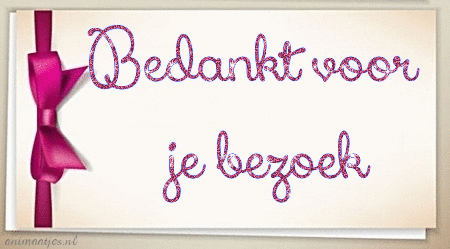 Bedankt voor
je bezoek
animaatjes.nl